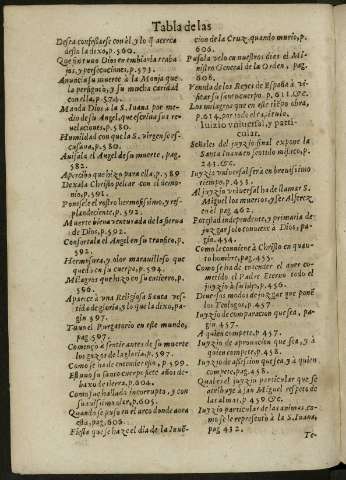 Tabla de las
Dessea confessarse con èl, y lo q̃ acerca
desto la dixo, p. 560.
Que hizo uno Dios en embiarla traba
jos, y persecuciones, p. 573.
Anuncia su muerte à la Monja que
la perseguia, y su mucha caridad
con ella, p. 574.
Manda Dios à la S. Iuana por me-
dio de su Angel, que escriva sus re-
uelaciones, p. 580.
Humildad con que la S. virgen se es-
cusaua, p. 580.
Auisala el Angel de su muerte, pag.
582.
Apercibo que hizo para ella, p. 589
Dexala Christo pelear con el demo-
nio, p. 591.
Ponesele el rostro hermosissimo, y res-
plandeciente, p. 592.
Muerte bienauenturada de la sierua
de Dios, p. 592.
Confortala el Angel en su transito, p.
592.
Hermosura, y olor marauilloso que
quedò en su cuerpo, p. 594.
Milagros que hizo en su entierro, p.
596.
Aparece à una Religiosa Santa ves-
tida de gloria, y lo que la dixo, pa-
gin. 597.
Tuuo el Purgatorio en este mundo,
pag. 597.
Començò à sentir antes de su muerte
los gozos de la gloria, p. 597.
Como se ha de entender esto, p. 599.
Estuuo su santo cuerpo siete años de-
baxo de tierra, p. 604.
Como fue hallada incorrupta, y con
suauissimo olor, p. 605.
Quando se puso en el arco donde aora
està, pag. 606.
Fiesta que se haze el dia de la Inuẽ-
cion de la Cruz, quando murio, p.
606.
Pusola velo en nuestros dias el Mi-
nistro General de la Orden, pag.
608.
Venida de los Reyes de España à vi-
sitar su santo cuerpo. p. 611. &c.
Los milagros que en este tiẽpo obra,
p. 614. por todo el capitulo.
Iuizio vniuersal, y parti-
cular.
Señales del juyzio final expone la
Santa Iuana en sentido mistico, p.
241. &c.
Iuyzio vniuersal serà en breuissimo
tiempo, p. 453.
Al juyzio vniuersal ha de llamar S.
Miguel los muertos, y ser Alferez
en el pag. 462.
Potestad independente, y primaria de
juzgar solo conuiene à Dios, pa-
gin. 454.
Como le conuiene à Christo en quan-
to hombre, pag. 453.
Como se ha de entender el auer co-
metido el Padre Eterno todo el
juyzio à su Hijo, p. 456.
Dòs modos de juzgar que ponẽ
los Teologos, p. 457
Iuyzio de comparacion que sea, pa-
gin. 457.
A quien compete, p. 457.
Iuyzio de aprouacion que sea, y à
quien compete, p. 458.
Iuyzio de assession que sea, y à quien
compete, pag. 458.
Qual es el juyzio particular que se
atribuye à san Miguel respeto de
las almas, p. 459. &c.
Iuyzio particular de las animas, co-
mo se le representò à la S. Iuana,
pag. 432.
Te-